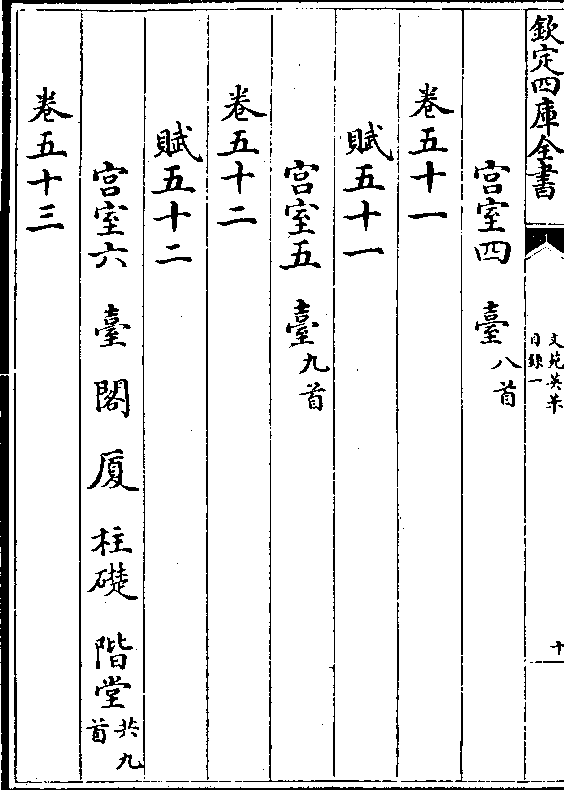 欽定四庫全書
文苑英華
目錄一
十
宫室四　臺八首
卷五十一
賦五十一
宫室五　臺九首
卷五十二
賦五十二
宫室六　臺　閣　厦　柱礎　階堂共九首
卷五十三